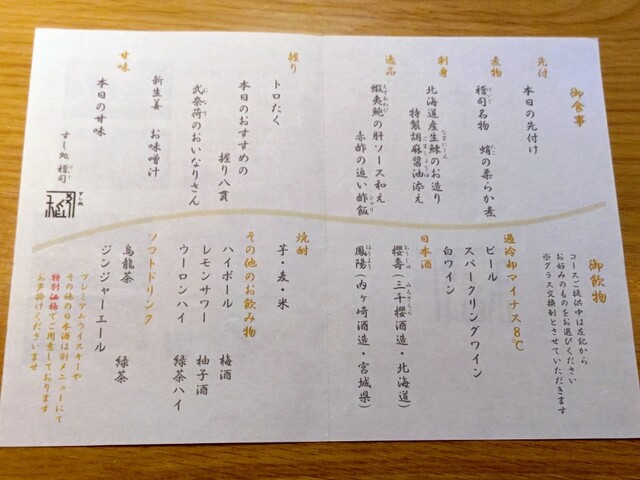 御食事
先付
本日の先付け
煮物
禧司名物 蛸の柔らか煮
刺身
北海道産生鰊のお造り
特製胡麻醤油添え
逸品
蝦夷鮑の肝ソース和え
赤酢の追い酢飯
握り
トロたく
本日のおすすめの
握り八貫
弐奈荷のおいなりさん
新生姜 お味噌汁
甘味
本日の甘味
すし処 禧司
御飲物
コースご提供中は左記から
お好みのものをお選びください
※グラス交換制とさせていただきます
過冷却マイナス8℃
ビール
スパークリングワイン
白ワイン
日本酒
櫻壽(三千櫻酒造・北海道)
鳳陽(内ヶ崎酒造・宮城県)
焼酎
芋・麦・米
その他のお飲み物
ハイボール 梅酒
レモンサワー 柚子酒
ウーロンハイ 緑茶ハイ
ソフトドリンク
烏龍茶 緑茶
ジンジャーエール
プレミアムウイスキーや
その他の日本酒は別メニューにて
特別価格でご用意しております
お声掛けくださいませ